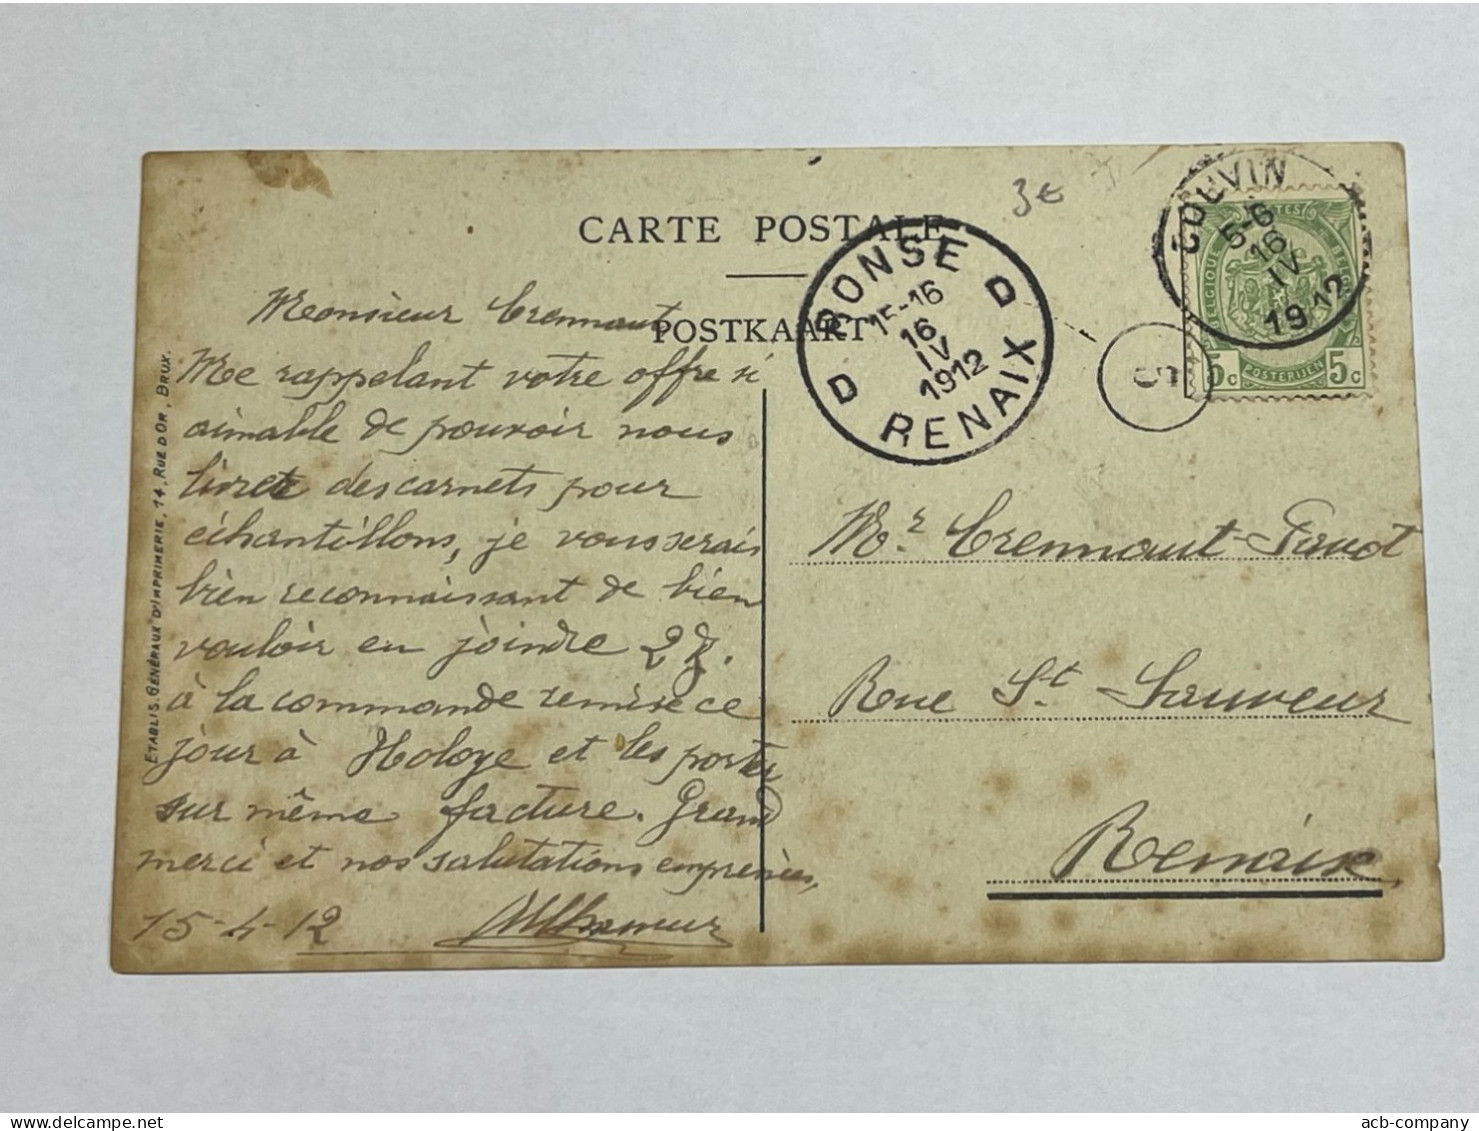 CARTE POSTALE
POSTKAART
3€
COUVIN
5-6
16
IV
1912
BELGIQUE
POSTES
BELGIE
POSTERIJEN
5c
5c
RONSE
D D
15-16
16
IV
1912
RENAIX
5
ETABLIS. GÉNÉRAUX D'IMPRIMERIE, 14, RUE D'OR, BRUX.
Monsieur Crennaut
Me rappelant votre offre si
aimable de pouvoir nous
livrer des carnets pour
échantillons, je vous serais
bien reconnaissant de bien
vouloir en joindre 2
à la commande remise ce
jour à et les porter
sur même facture. Grand
merci et nos salutations empressées,
15-4-12
Mr. Crennaut
Rue St. Sauveur
Renaix
acb-company